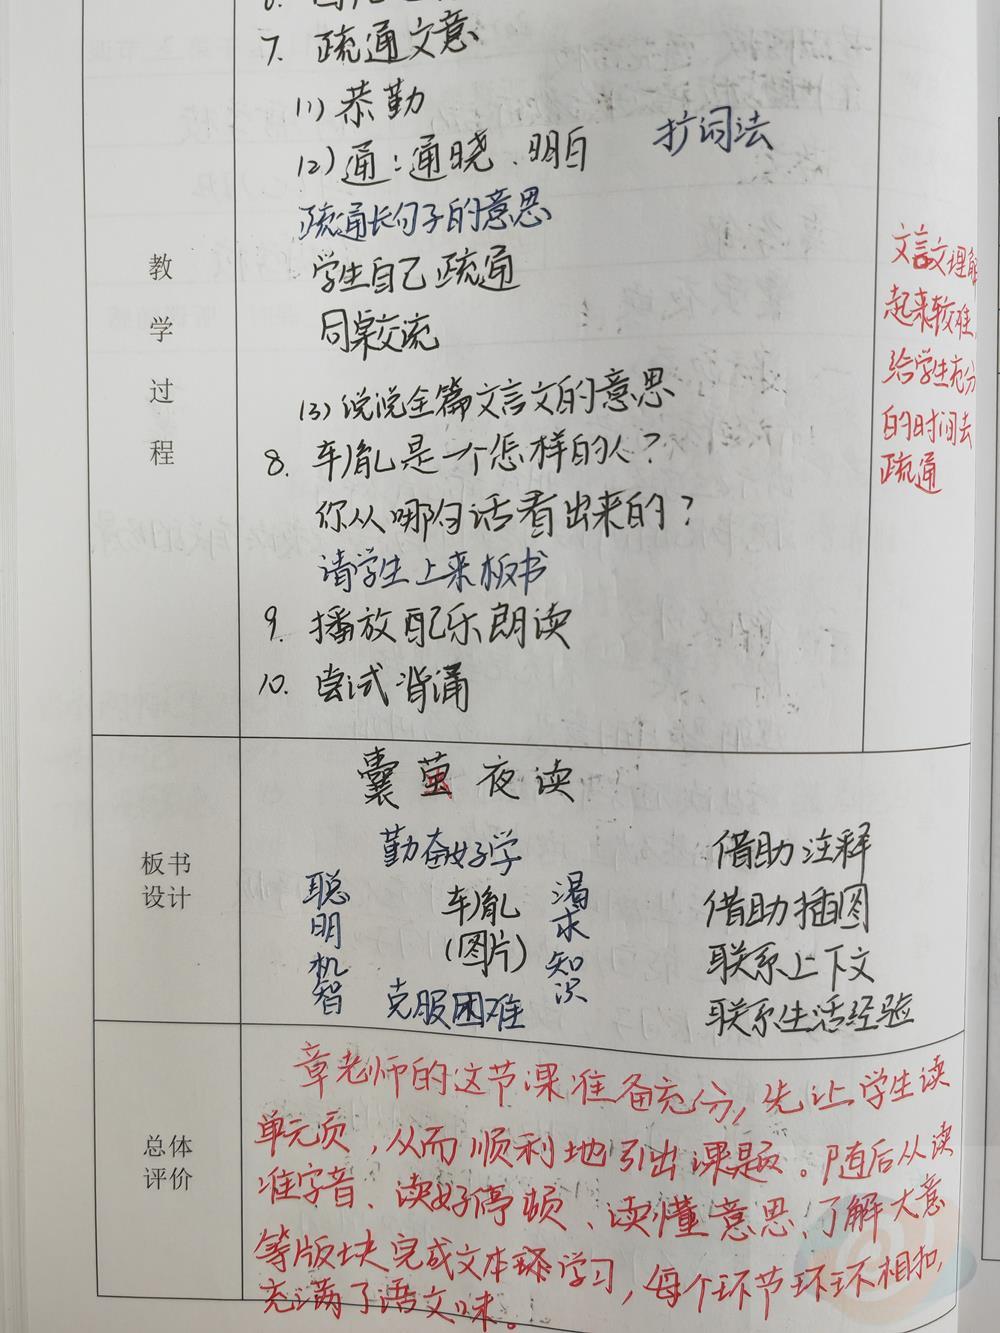 7. 疏通文意
(1) 恭勤
(2) 通：通晓、明白 扩词法
疏通长句子的意思
学生自己疏通
同桌交流
(3) 说说全篇文言文的意思
8. 车胤是一个怎样的人？
你从哪句话看出来的？
请学生上来板书
9. 播放配乐朗读
10. 尝试背诵
教
学
过
程
文言文理解
起来较难，
给学生充分
的时间去
疏通
板书
设计
囊萤夜读
勤奋好学
聪明机智
车胤
(图片)
渴求知识
克服困难
借助注释
借助插图
联系上下文
联系生活经验
总体
评价
章老师的这节课准备充分，先让学生读
单元页，从而顺利地引出课题。随后从读
准字音、读好停顿、读懂意思、了解大意
等版块完成文本学习，每个环节环环相扣，
充满了语文味。